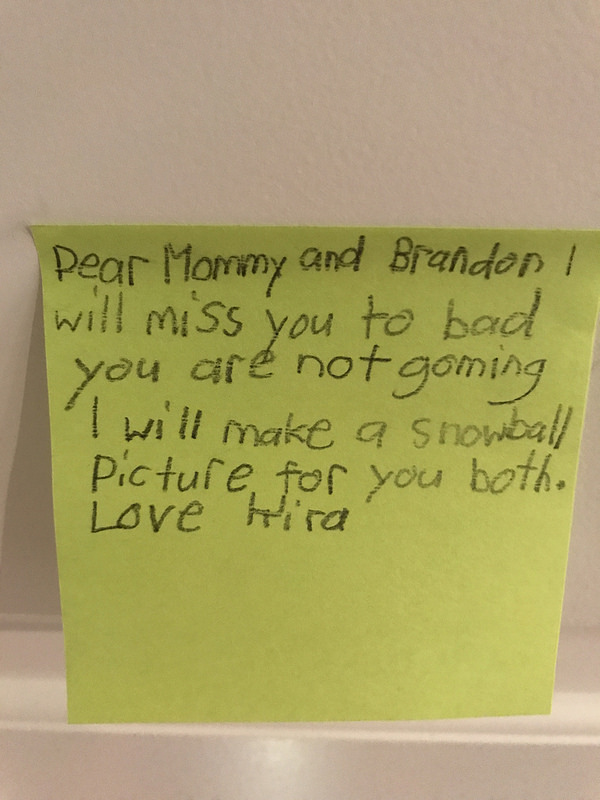 Dear Mommy and Brandon I
will miss you to bad
you are not goming
I will make a snowball
Picture for you both.
Love Hira